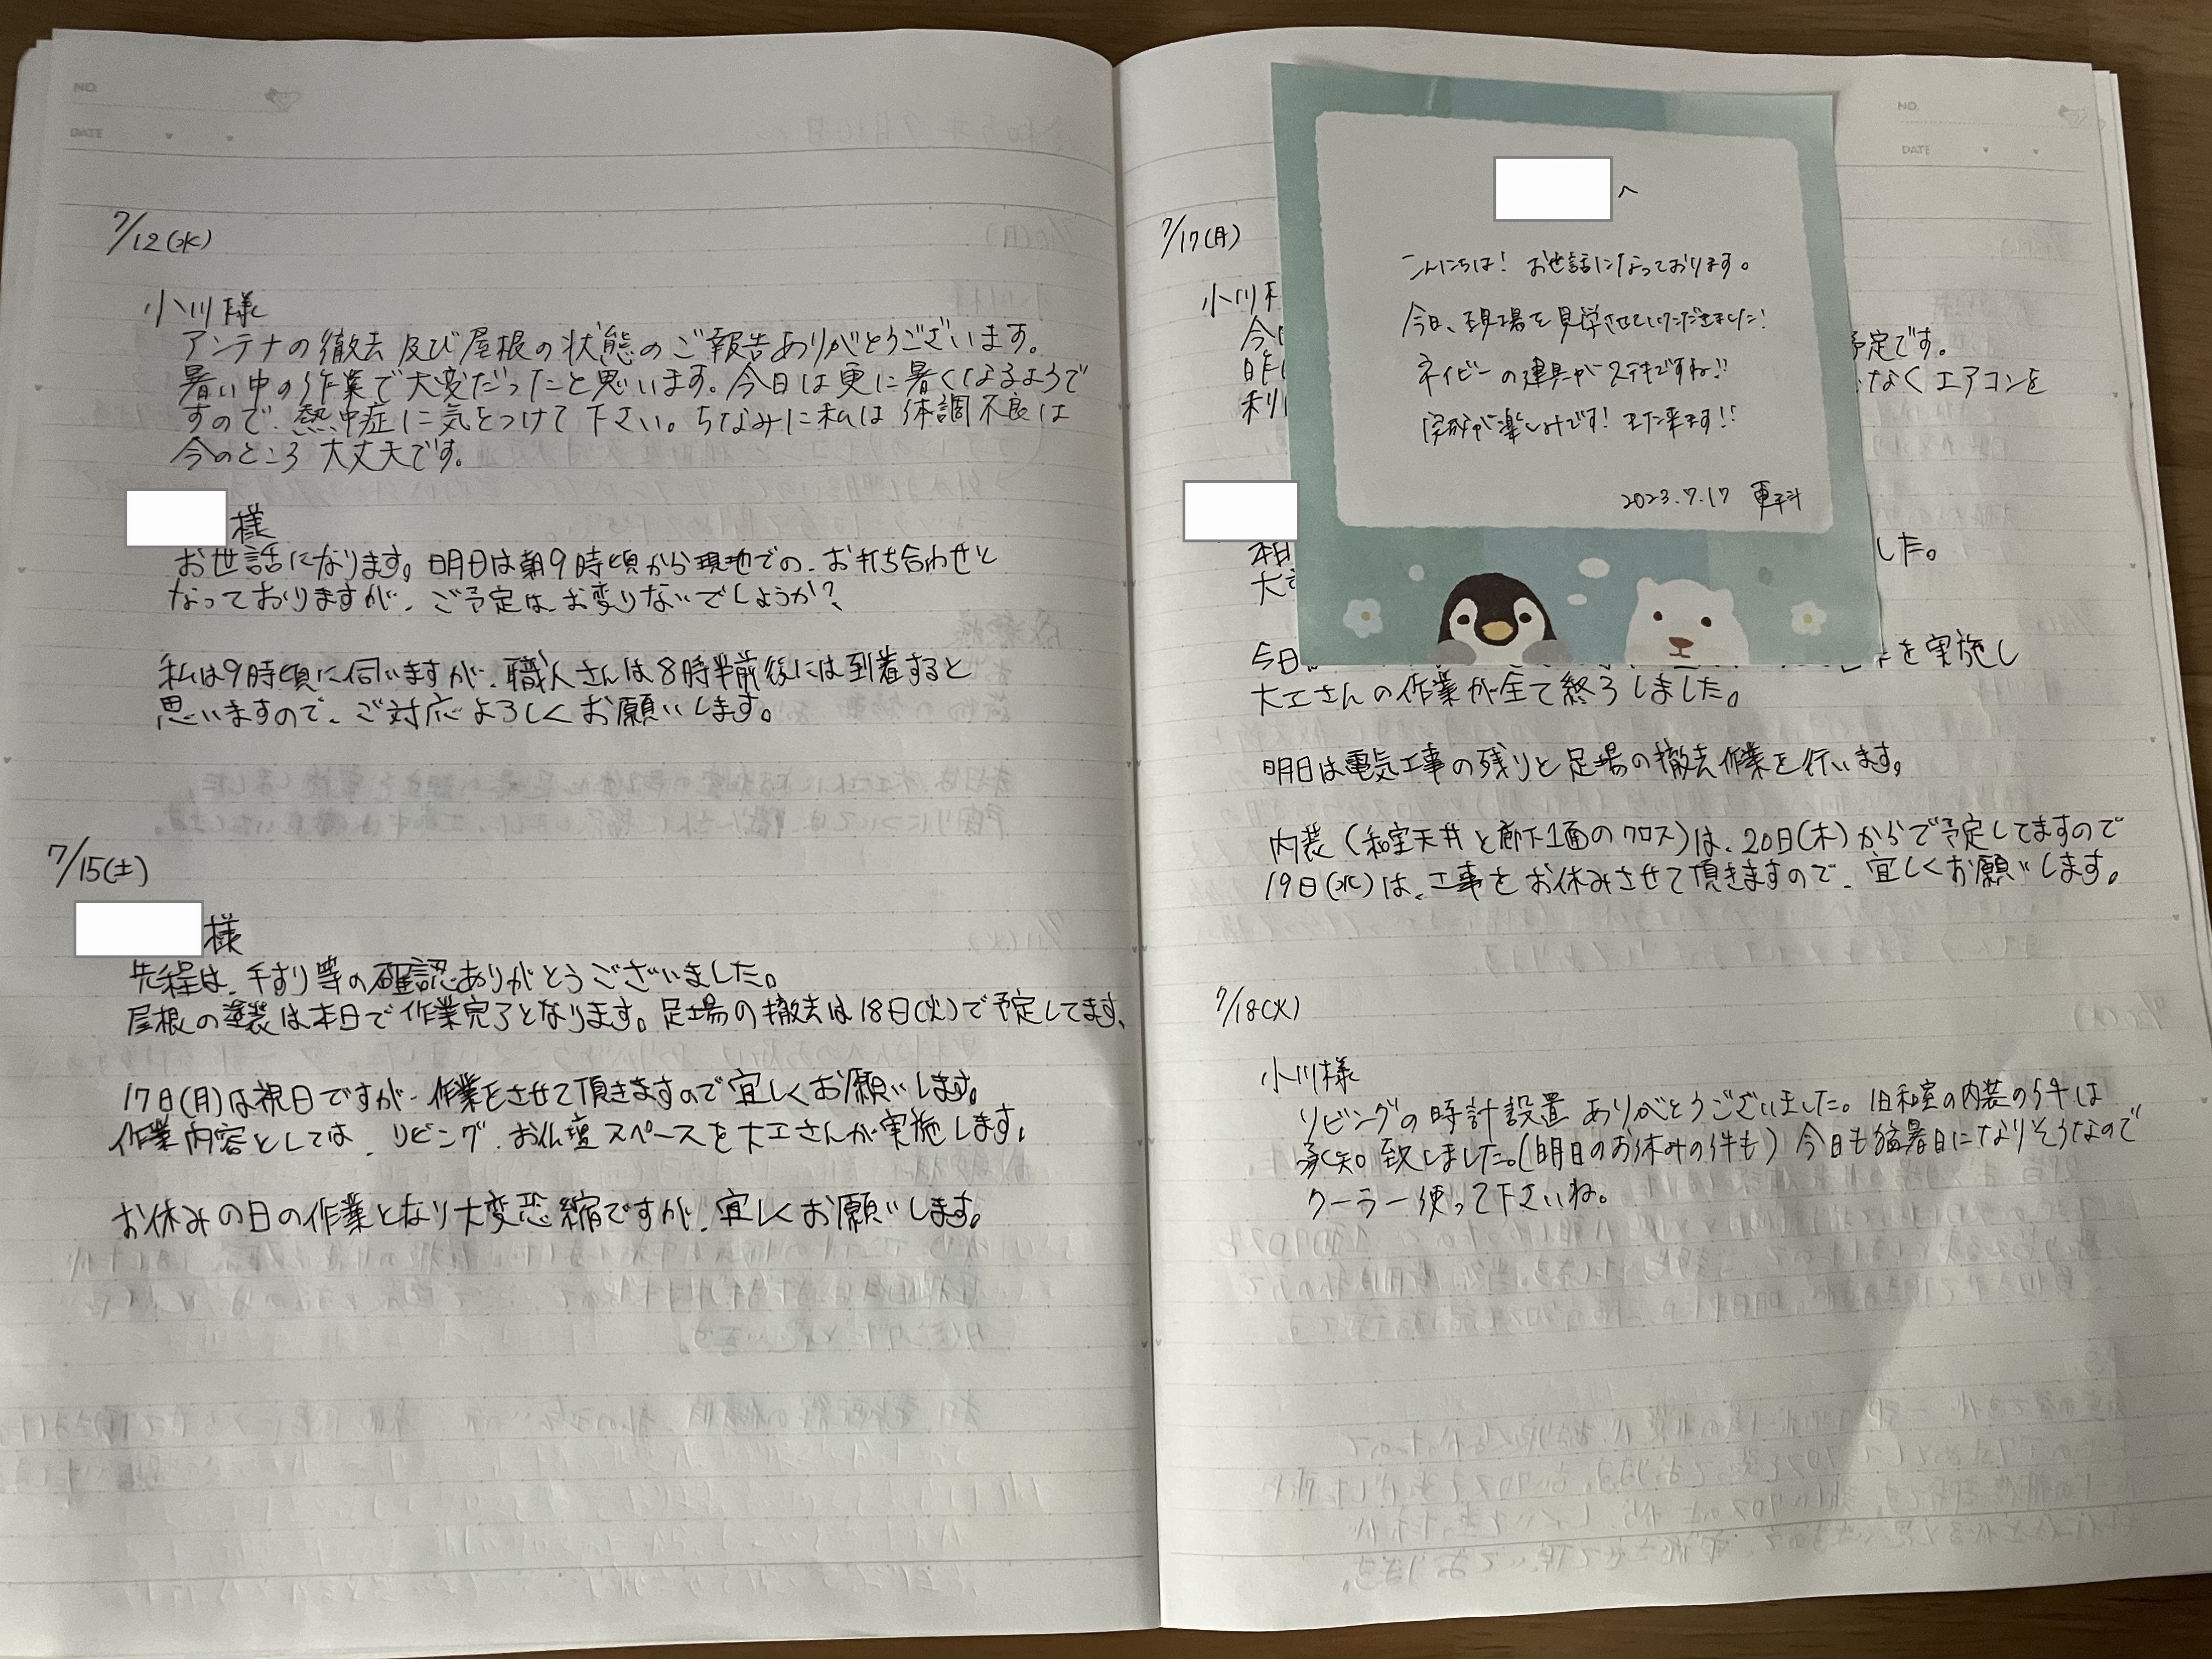 NO.
DATE
7/12(水)
小川様
アンテナの徹去及び屋根の状態のご報告ありがとうございます。
暑い中の作業で大変だったと思います。今日は更に暑くなるようで
すので、熱中症に気をつけて下さい。ちなみに私は体調不良は
今のところ大丈夫です。
様
お世話になります。明日は朝9時頃から現地での、お打ち合わせと
なっておりますが、ご予定は、お変りないでしょうか?
私は9時頃に伺いますが、職人さんは8時半前後には到着すると
思いますので、ご対応よろしくお願いします。
7/15(土)
様
先程は、手すり等の確認ありがとうございました。
屋根の塗装は本日で作業完了となります。足場の撤去は18日(火)で予定してます、
17日(月)は祝日ですが、作業をさせて頂きますので宜しくお願いします。
作業内容としては、リビング、お仏壇スペースを大工さんが実施します。
お休みの日の作業となり大変恐縮ですが、宜しくお願いします。
NO.
DATE
7/17(月)
小川
今
予定です。
昨
なくエアコンを
利
へ
こんにちは! お世話になっております。
今日、現場を見学させていただきました!
ネイビーの建具がステキですね!!
完成が楽しみです! また来ます!!
2023.7.17
本日
した。
大
今日
を実施し
大工さんの作業が全て終了しました。
明日は電気工事の残りと足場の撤去作業を行います。
内装(和室天井と廊下1面のクロス)は、20日(木)からで予定してますので
19日(水)は、工事をお休みさせて頂きますので、宜しくお願いします。
7/18(火)
小川様
リビングの時計設置ありがとうございました。旧和室の内装の件は
承知致しました。(明日のお休みの件も) 今日も猛暑日になりそうなので
クーラー使って下さいね。